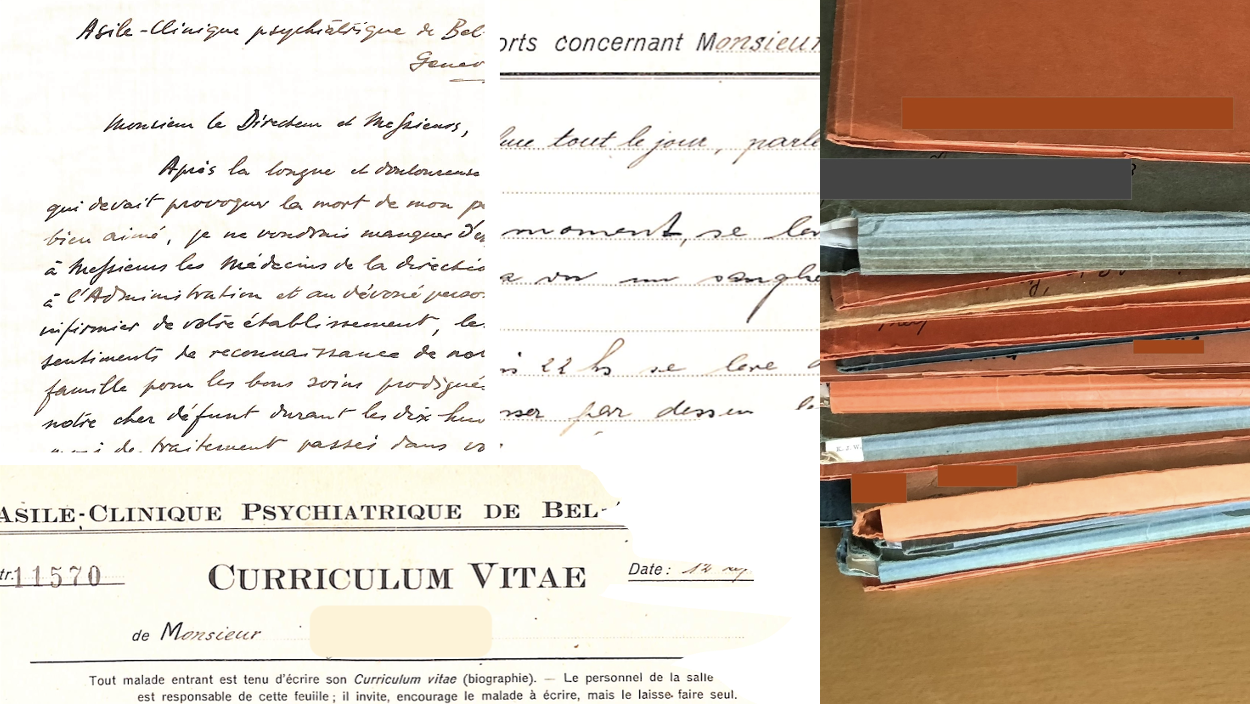 Asile-Clinique psychiâtrique de Bel-
Genèv
Monsieur le Directeur et Messieurs,
Après la longue et douloureuse
qui devait provoquer la mort de mon p
bien aimé, je ne voudrais manquer d'ex
à Messieurs les Médecins de la directio
à l'Administration et au dévoué perso
infirmier de votre établissement, les
sentiments de reconnaissance de not
famille pour les bons soins prodigués
notre cher défunt durant les dix-hui
de traitement passés dans vo
orts concernant Monsieur
tout le jour, parle
moment, se lev
a vu un sangli
is 22 hs se lève
sser par dessus le
ASILE-CLINIQUE PSYCHIATRIQUE DE BEL-
tr. 11570
CURRICULUM VITAE
Date : 12
de Monsieur
Tout malade entrant est tenu d'écrire son Curriculum vitae (biographie). — Le personnel de la salle
est responsable de cette feuille ; il invite, encourage le malade à écrire, mais le laisse faire seul.